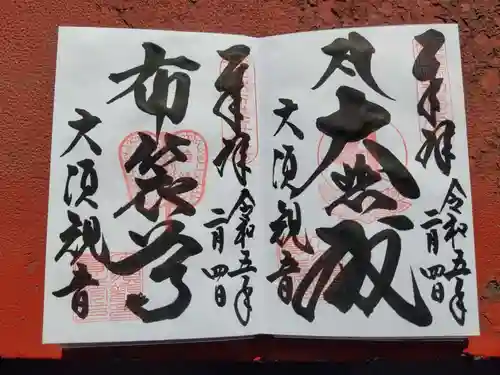 奉拝
令和五年
二月四日
大悲殿
大須観音
奉拝
令和五年
二月四日
布袋尊
大須観音